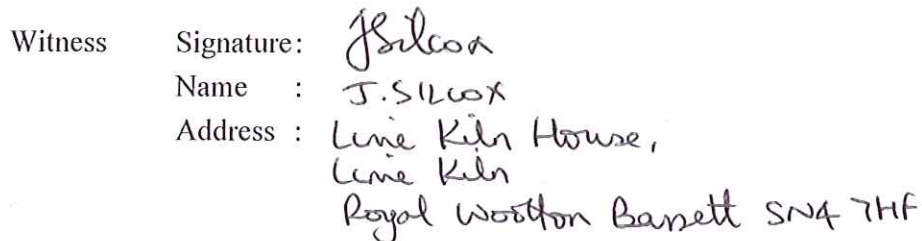 Witness Signature: JSilcox
Name : J. SILCOX
Address : Lime Kiln House,
Lime Kiln
Royal Wootton Bassett SN4 7HF